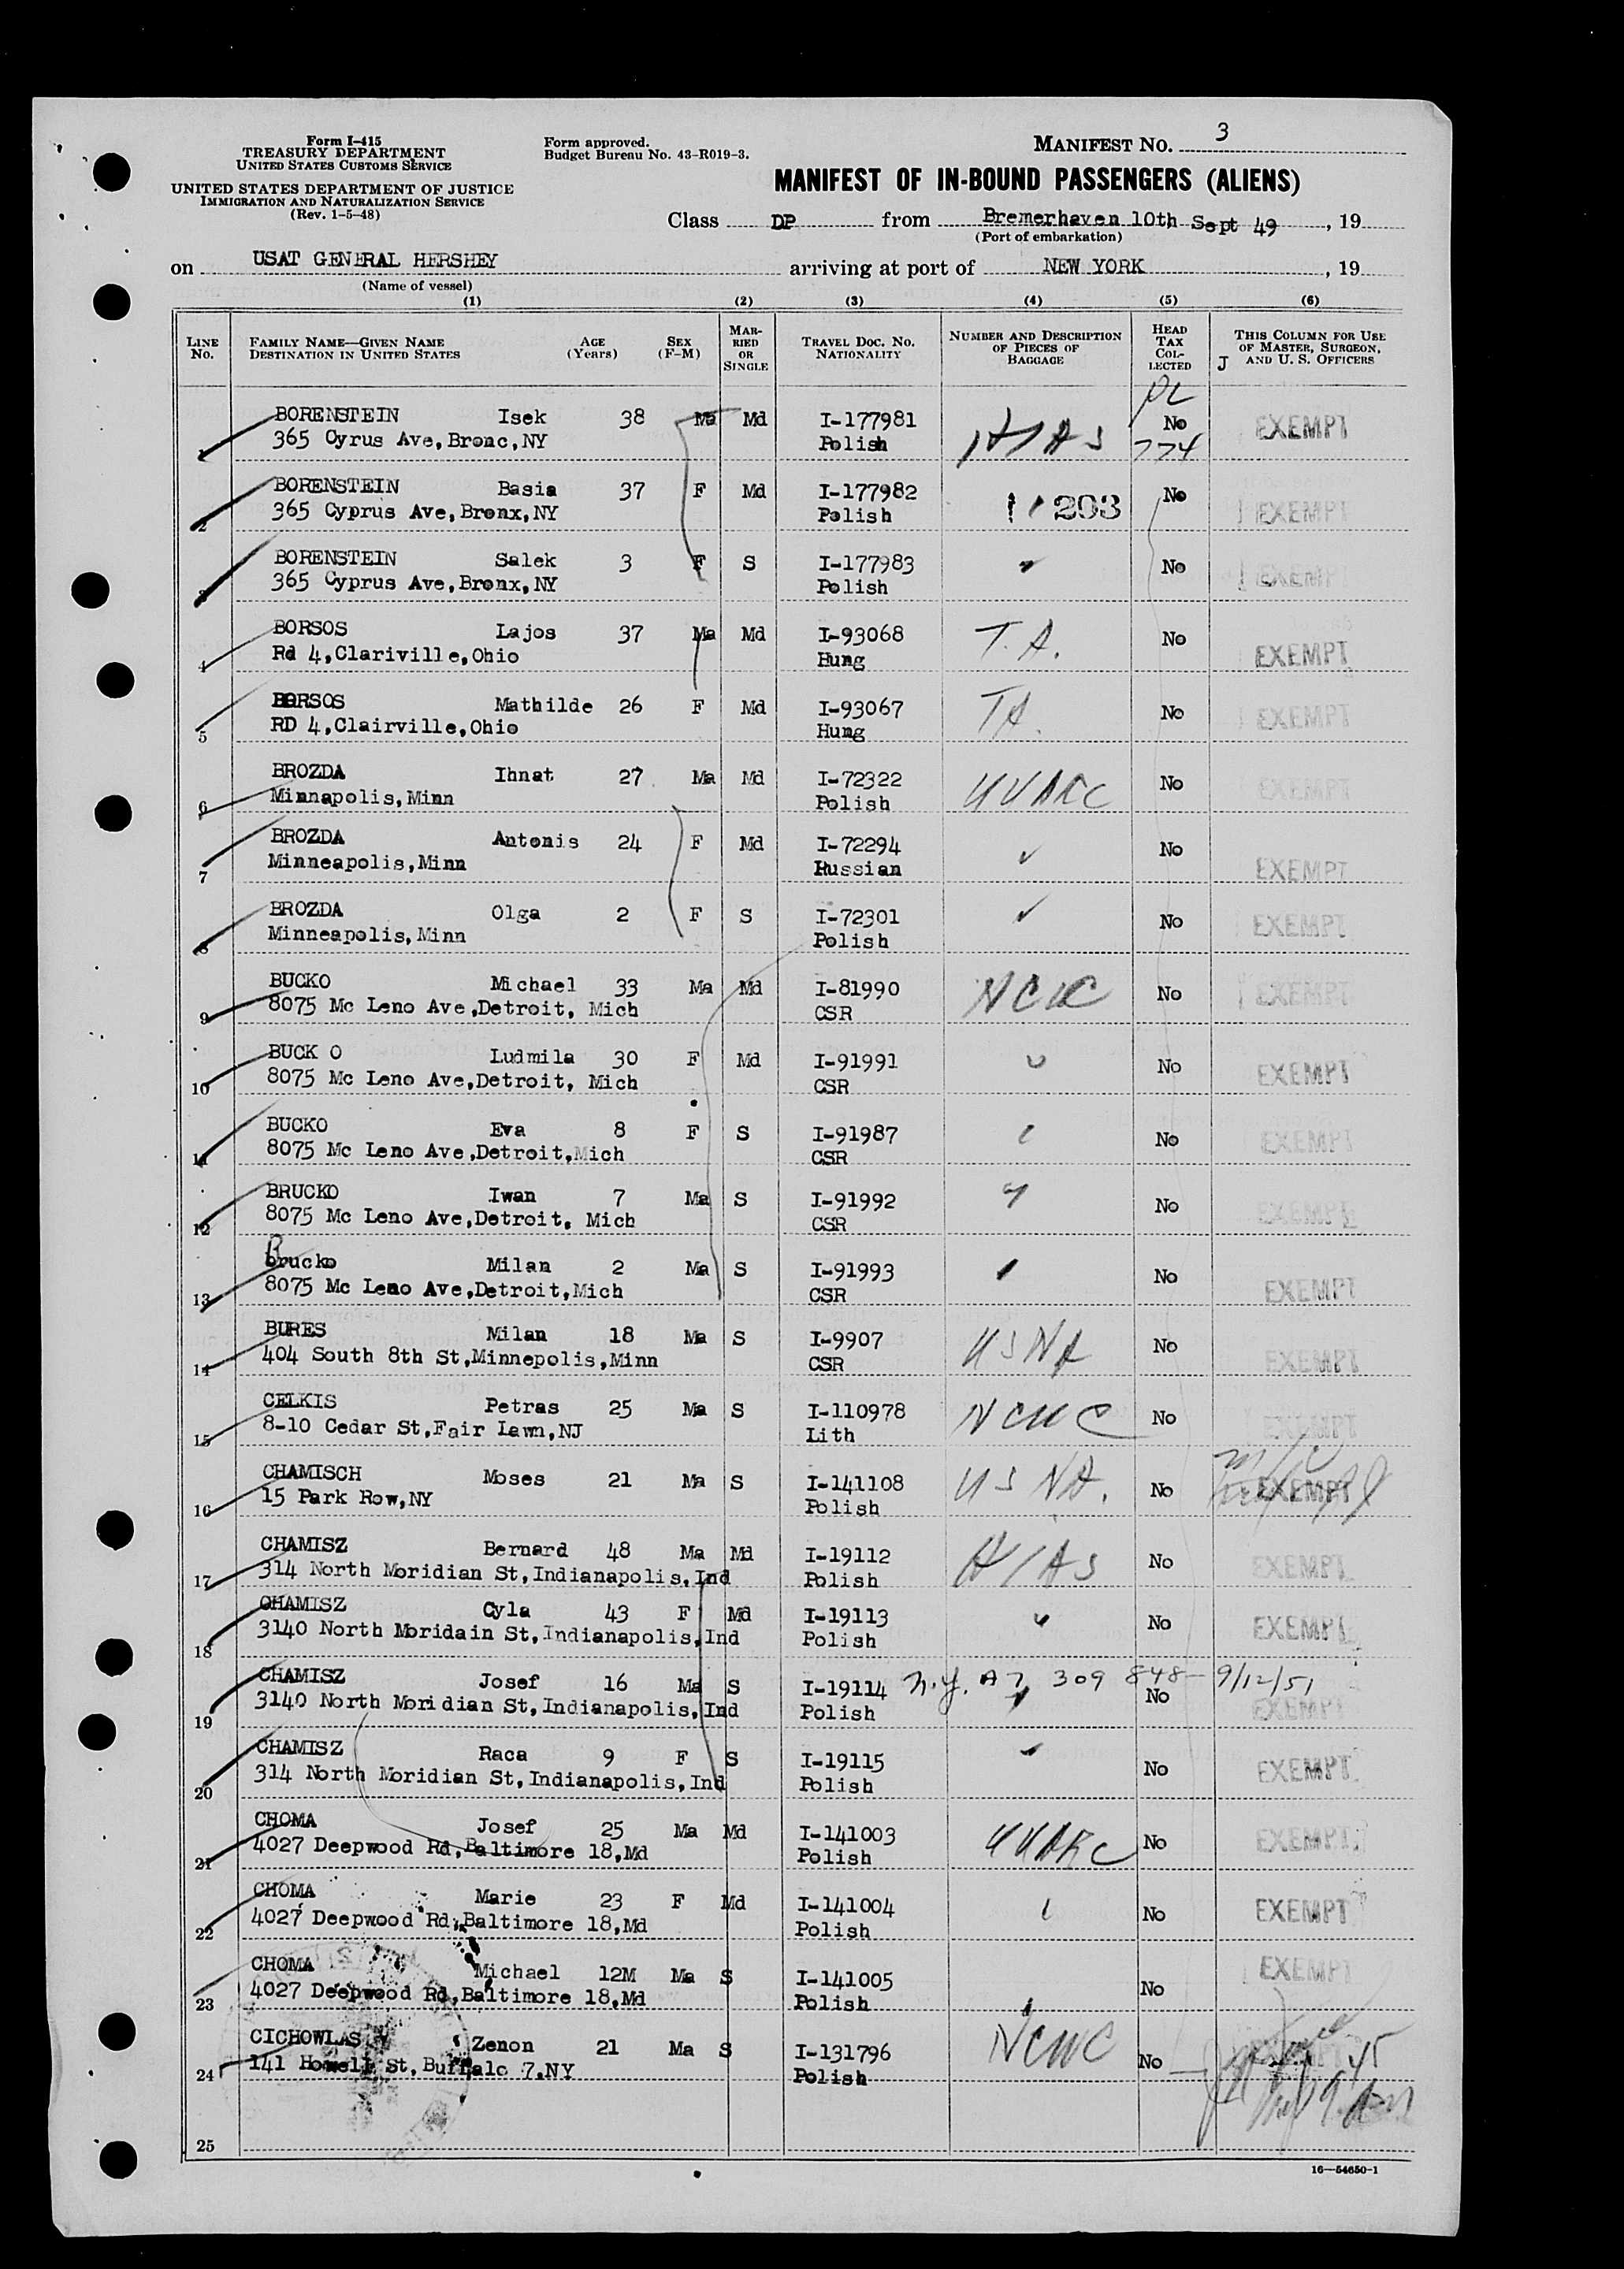 Form I-415
TREASURY DEPARTMENT
UNITED STATES CUSTOMS SERVICE
UNITED STATES DEPARTMENT OF JUSTICE
IMMIGRATION AND NATURALIZATION SERVICE
(Rev. 1-5-48)
Form approved.
Budget Bureau No. 43-R019-3.
MANIFEST NO. 3
MANIFEST OF IN-BOUND PASSENGERS (ALIENS)
Class DP from Bremerhaven 10th Sept 49, 19
(Port of embarkation)
on USAT GENERAL HERSHEY arriving at port of NEW YORK, 19
(Name of vessel)
(1) (2) (3) (4) (5) (6)
LINE No. FAMILY NAME—GIVEN NAME DESTINATION IN UNITED STATES AGE (Years) SEX (F-M) MARRIED OR SINGLE TRAVEL DOC. NO. NATIONALITY NUMBER AND DESCRIPTION OF PIECES OF BAGGAGE HEAD TAX COLLECTED THIS COLUMN FOR USE OF MASTER, SURGEON, AND U. S. OFFICERS J
1 BORENSTEIN Isek 38 Ma Md I-177981 HIAS No EXEMPT
365 Cyrus Ave,Bronc,NY Polish 774
2 BORENSTEIN Basia 37 F Md I-177982 203 No EXEMPT
365 Cyprus Ave,Bronx,NY Polish
3 BORENSTEIN Salek 3 F S I-177983 No EXEMPT
365 Cyprus Ave,Bronx,NY Polish
4 BORSOS Lajos 37 Ma Md I-93068 T.A. No EXEMPT
Rd 4,Clariville,Ohio Hung
5 BORSOS Mathilde 26 F Md I-93067 TA. No EXEMPT
RD 4,Clairville,Ohio Hung
6 BROZDA Ihnat 27 Ma Md I-72322 UUARC No EXEMPT
Minnapolis,Minn Polish
7 BROZDA Antonis 24 F Md I-72294 No EXEMPT
Minneapolis,Minn Russian
8 BROZDA Olga 2 F S I-72301 No EXEMPT
Minneapolis,Minn Polish
9 BUCKO Michael 33 Ma Md I-81990 NCWC No EXEMPT
8075 Mc Leno Ave,Detroit, Mich CSR
10 BUCK O Ludmila 30 F Md I-91991 No EXEMPT
8075 Mc Leno Ave,Detroit, Mich CSR
11 BUCKO Eva 8 F S I-91987 No EXEMPT
8075 Mc Leno Ave,Detroit,Mich CSR
12 BRUCKO Iwan 7 Ma S I-91992 No EXEMPT
8075 Mc Leno Ave,Detroit, Mich CSR
13 Brucko Milan 2 Ma S I-91993 No EXEMPT
8075 Mc Leno Ave,Detroit,Mich CSR
14 BURES Milan 18 Ma S I-9907 USNA No EXEMPT
404 South 8th St,Minnepolis,Minn CSR
15 CELKIS Petras 25 Ma S I-110978 NCWC No EXEMPT
8-10 Cedar St,Fair Lawn,NJ Lith
16 CHAMISCH Moses 21 Ma S I-141108 USNA. No EXEMPT
15 Park Row,NY Polish
17 CHAMISZ Bernard 48 Ma Md I-19112 HIAS No EXEMPT
314 North Moridian St,Indianapolis,Ind Polish
18 CHAMISZ Cyla 43 F Md I-19113 No EXEMPT
3140 North Moridain St,Indianapolis,Ind Polish
19 CHAMISZ Josef 16 Ma S I-19114 N.Y. A7 309 848- 9/12/51 No EXEMPT
3140 North Moridian St,Indianapolis,Ind Polish
20 CHAMISZ Raca 9 F S I-19115 No EXEMPT
314 North Moridian St,Indianapolis,Ind Polish
21 CHOMA Josef 25 Ma Md I-141003 UUARC No EXEMPT
4027 Deepwood Rd,Baltimore 18,Md Polish
22 CHOMA Marie 23 F Md I-141004 No EXEMPT
4027 Deepwood Rd,Baltimore 18,Md Polish
23 CHOMA Michael 12M Ma S I-141005 No EXEMPT
4027 Deepwood Rd,Baltimore 18,Md Polish
24 CICHOWLAS Zenon 21 Ma S I-131796 NCWC No
141 Howell St,Buffalo 7,NY Polish
25
16—54650-1